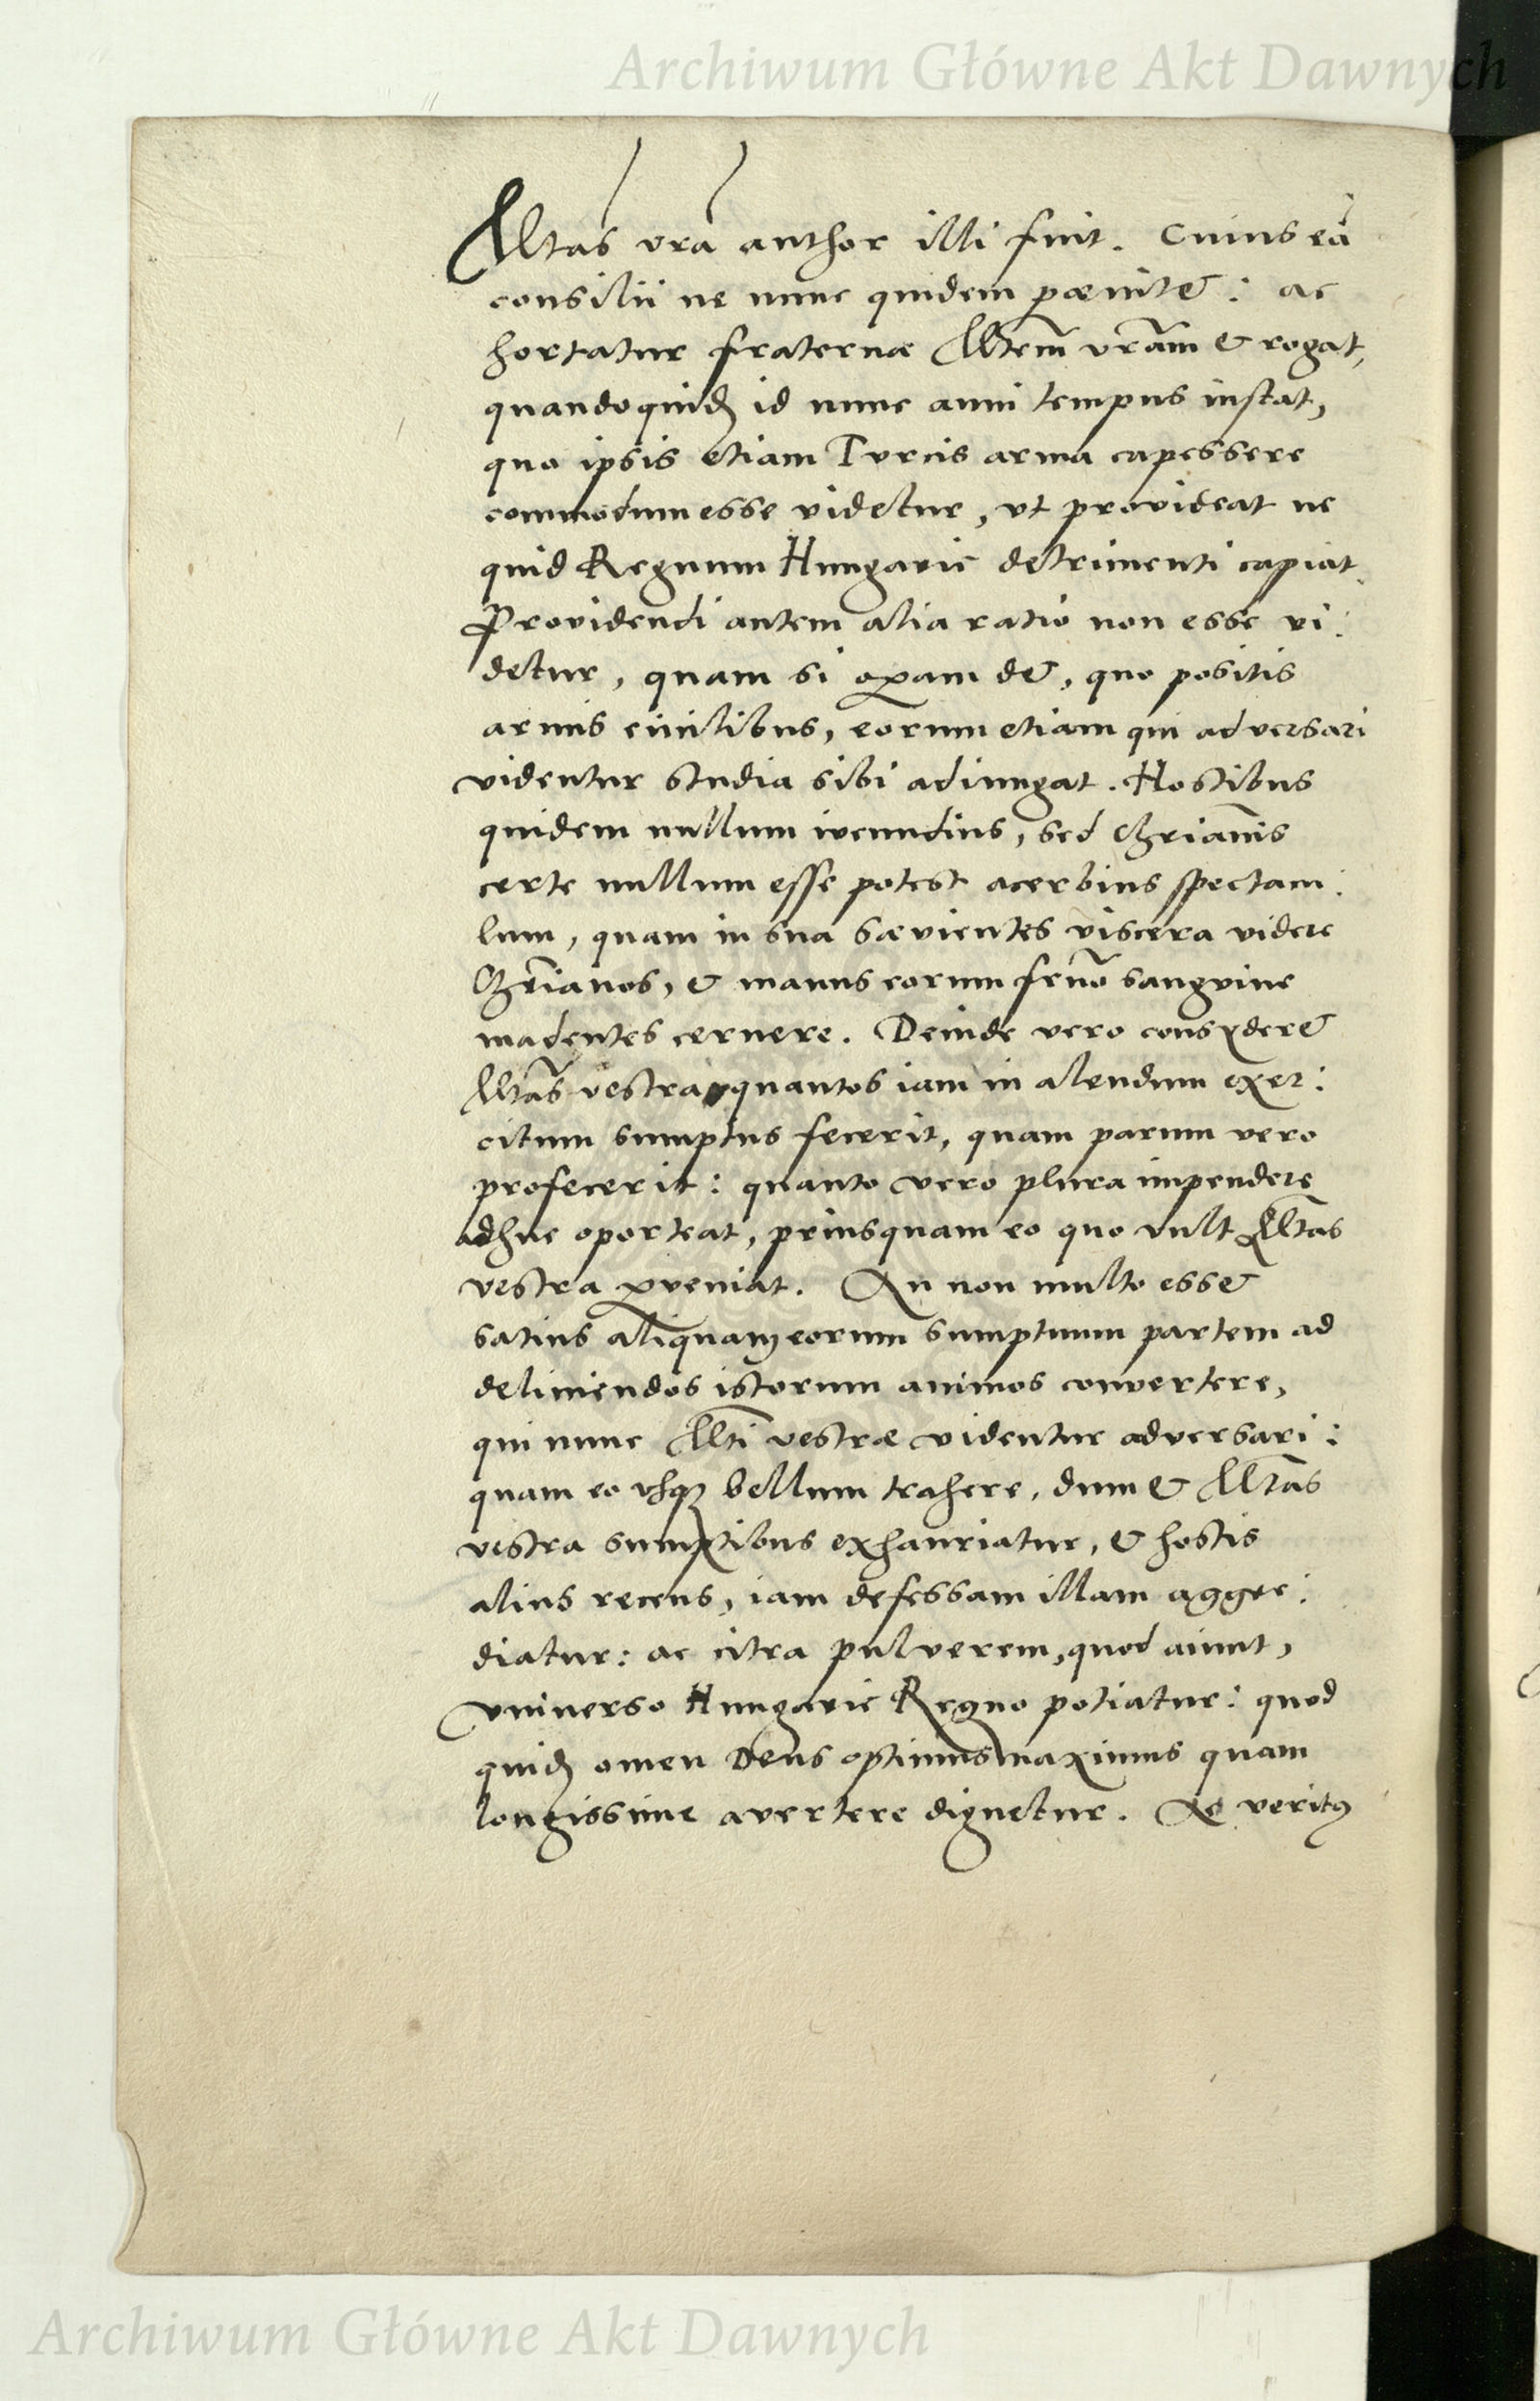 Archiwum Główne Akt Dawnych
Mtas vra author illi fuit. Cuius eā
consilii ne nunc quidem pœnitet: ac
hortatur fraterne Mtem vram et rogat,
quandoquidē id nunc anni tempus instat,
quo ipsis etiam Turcis arma capessere
commodum esse videtur, vt provideat ne
quid Regnum Hungarie detrimenti capiat.
Providendi autem alia ratio non esse vi:
detur, quam si operam det, quo positis
armis ciuilibus, eorum etiam qui adversari
videntur studia sibi adiungat. Hostibus
quidem nullum iucundius, sed Chrianis
certe nullum esse potest acerbius spectacu:
lum, quam in sua sævientes viscera videre
Chrianos, et manus eorum frno sanguine
madentes cernere. Deinde vero consyderet
Mtas vestra, quantos iam in alendum exer:
citum sumptus fecerit, quam parum vero
profecerit: quanto vero plura impendere
adhuc oporteat, priusquam eo quo vult Mtas
vestra perveniat. An non multo esset
satius aliquam eorum sumptuum partem ad
deliniendos istorum animos convertere,
qui nunc Mti vestræ videntur adversari:
quam eo vsque bellum trahere, dum et Mtas
vestra sumptibus exhauriatur, et hostis
alius recens, iam defessam illam aggre:
diatur: ac citra pulverem, quod aiunt,
vniuerso Hungarie Regno potiatur: quod
quidē omen Deus optimus maximus quam
longissime avertere dignetur. Ac veritus
Archiwum Główne Akt Dawnych